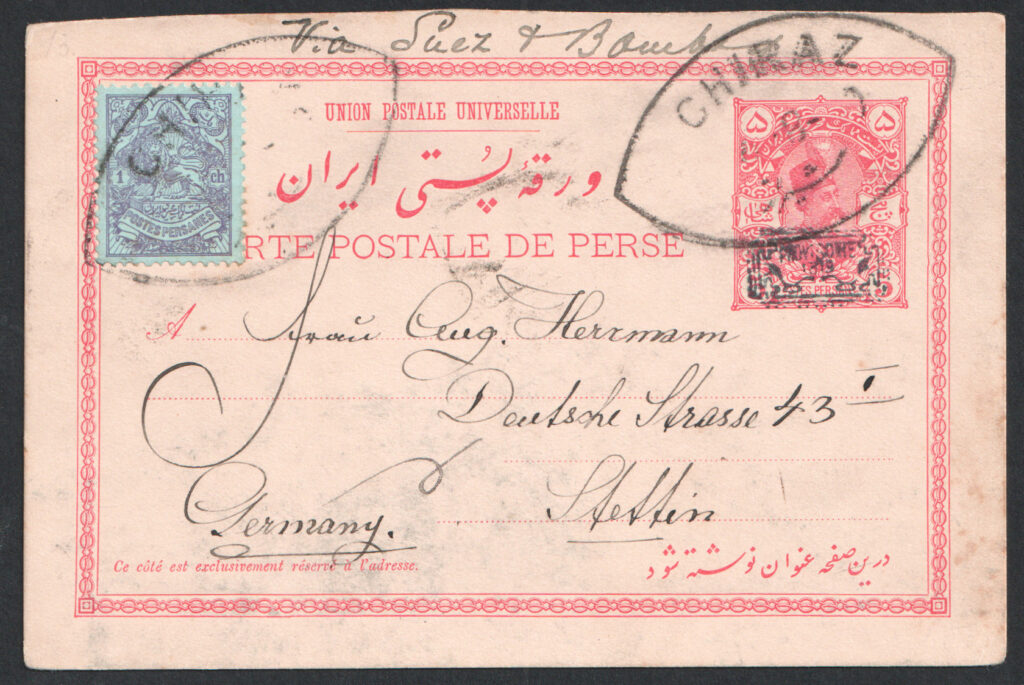 Via Suez & Bombay
CHIRAZ
CHIRAZ
1 ch
POSTES PERSANES
UNION POSTALE UNIVERSELLE
ورقهٔ پستی ایران
CARTE POSTALE DE PERSE
۵ ۵
A Frau Aug. Herrmann
Deutsche Strasse 43 I
Stettin
Germany.
Ce côté est exclusivement réservé à l'adresse.
درین صفحه عنوان نوشته شود